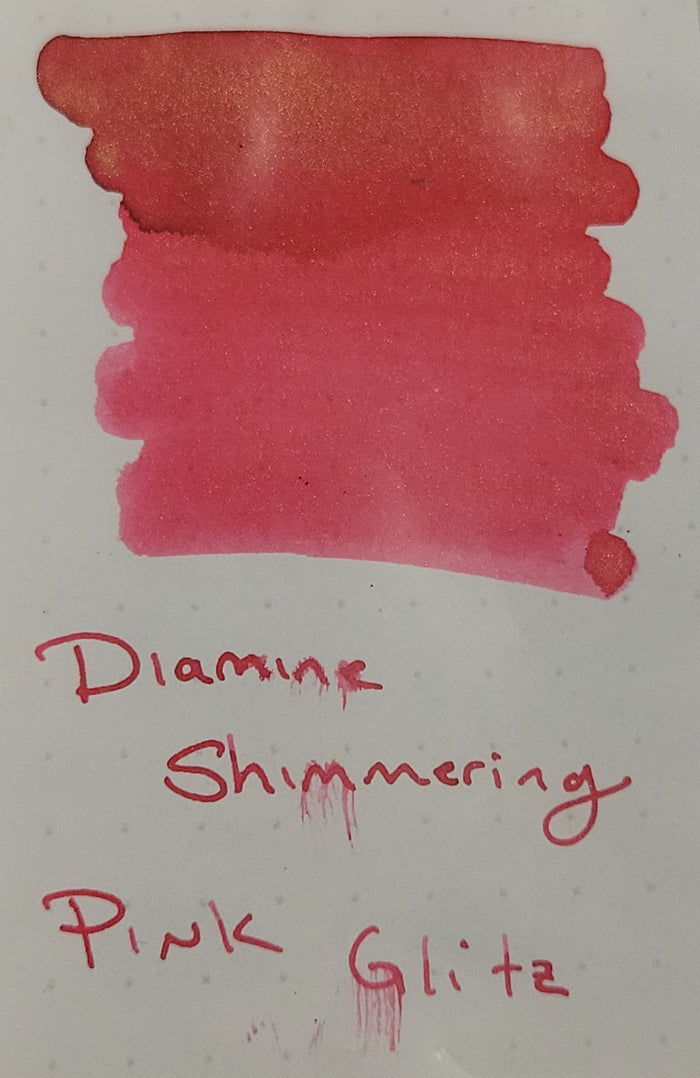 Diamine
Shimmering
Pink Glitz